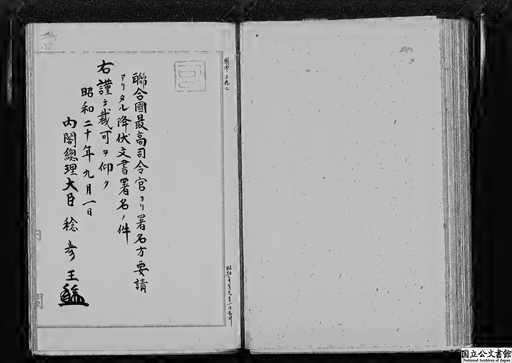 聯合國最高司令官ヨリ署名方要請
アリタル降伏文書署名ノ件
右謹テ裁可ヲ仰ク
昭和二十年九月一日
内閣總理大臣 稔彦王
内閣
国立公文書館
National Archives of Japan